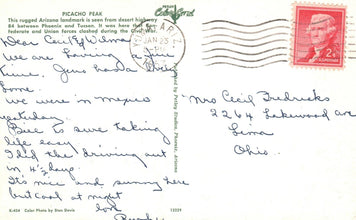 PICACHO PEAK
This rugged Arizona landmark is seen from desert highway
84 between Phoenix and Tucson. It was here Con-
federate and Union forces clashed during the Civil War.
Dear Cecil & Wilma
We are having a fine
time. Gene has a
home.
We were in Mexico
yesterday.
Bill is sure taking
life easy.
I did the driving out
in 4½ days.
It's nice and sunny here
but cool at night
love
K-424 Color Photo by Stan Davis
12229
Petley Studios, Phoenix, Arizona
PETLEY
ARIZ
2¢
Mrs Cecil Fredricks
2264 Lakewood ave
Lima
Ohio.